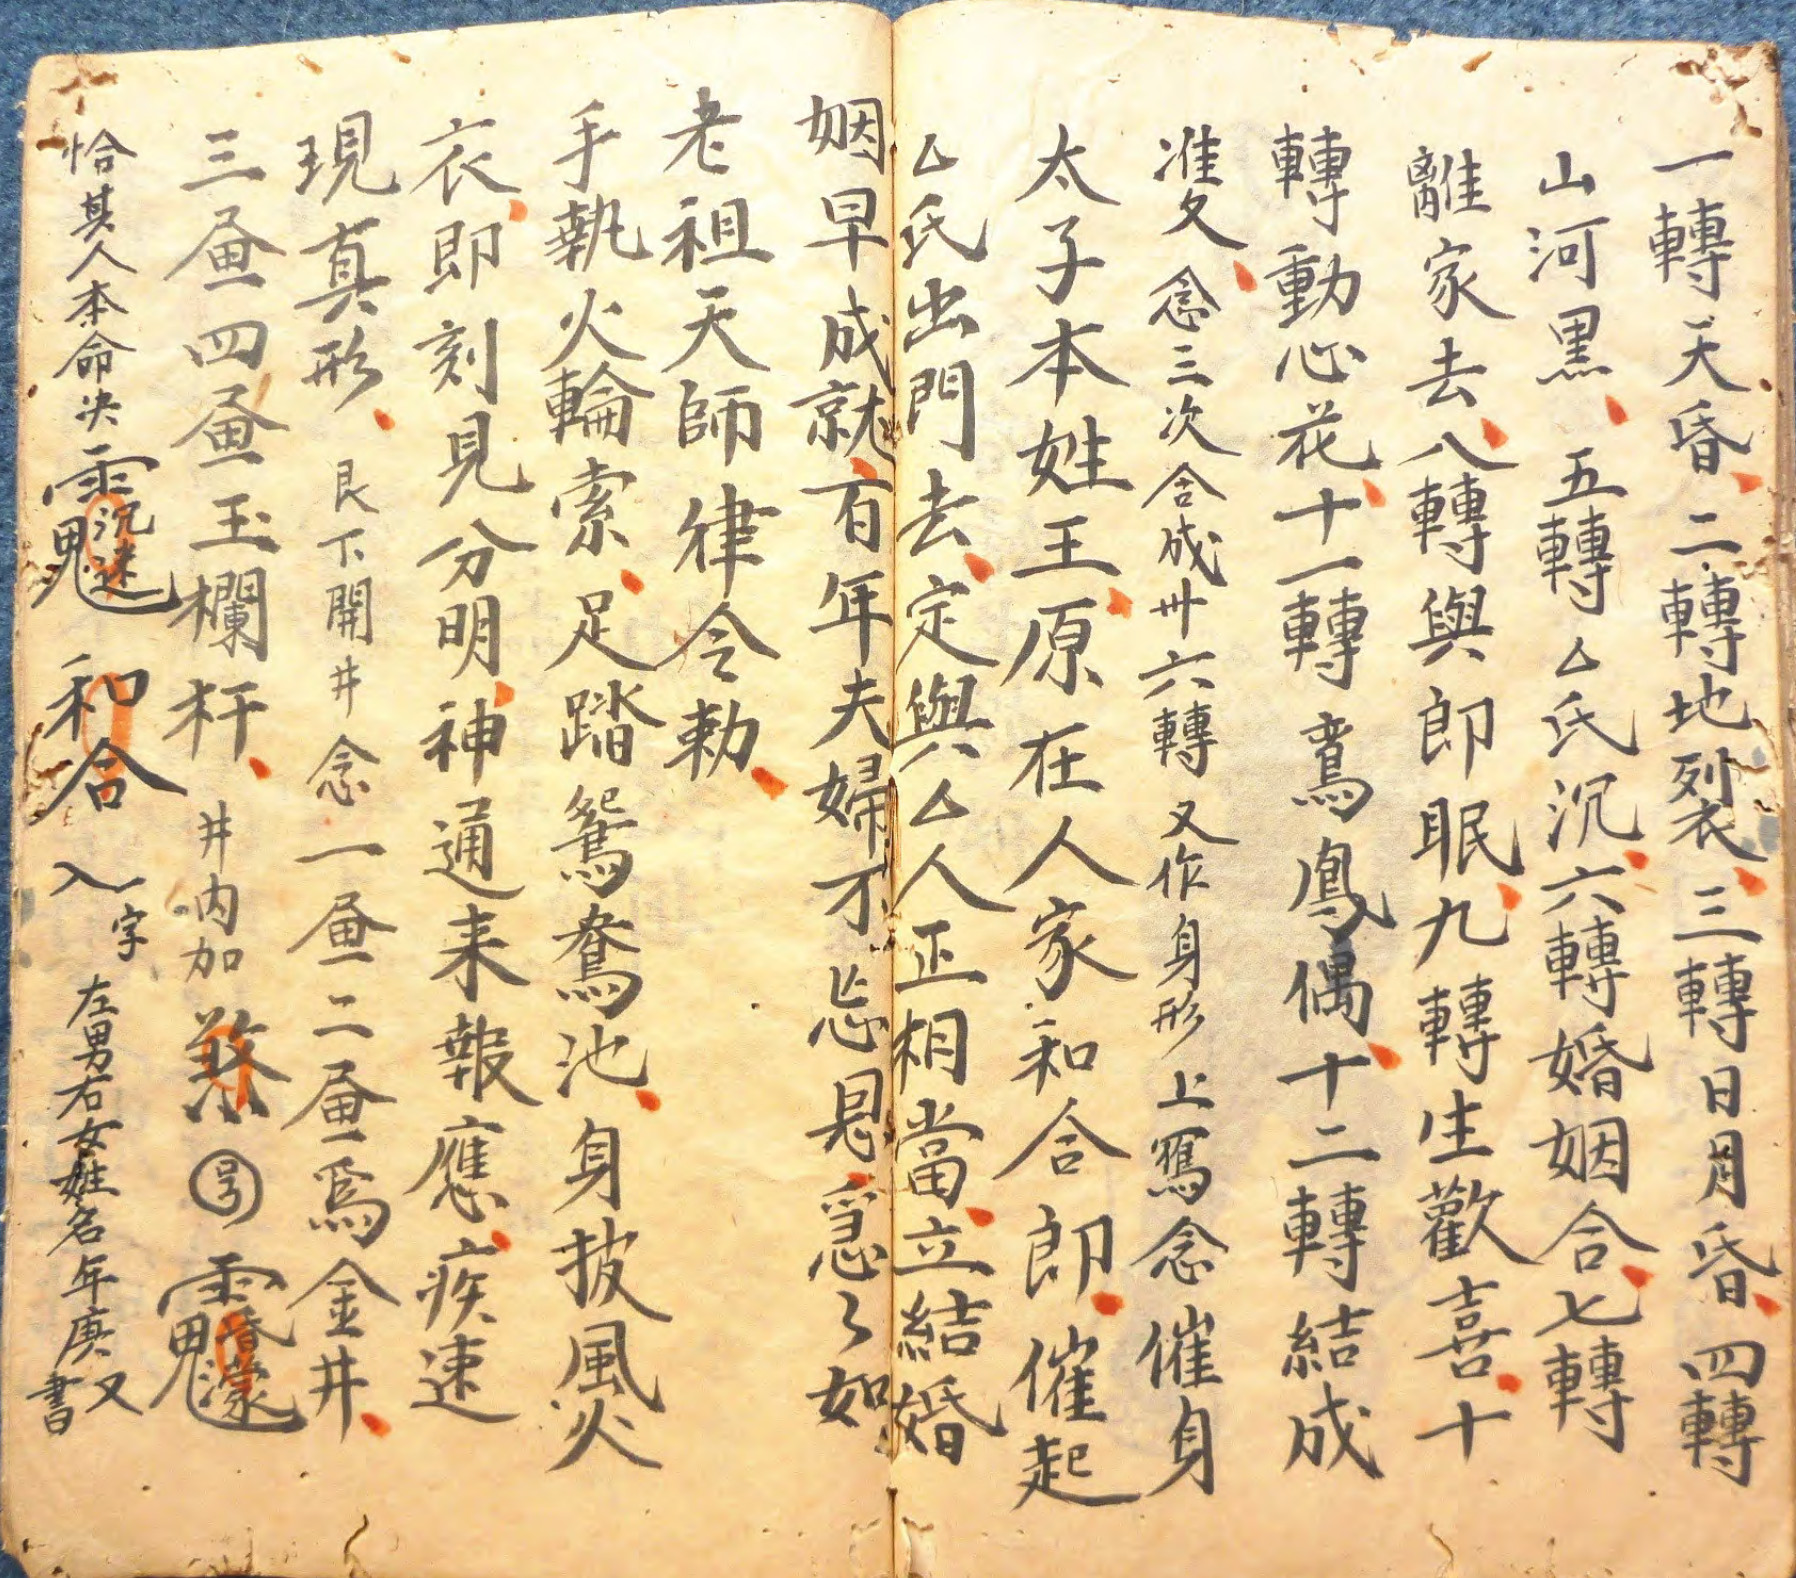 一轉天昏二轉地裂三轉日月昏四轉
山河黑五轉厶氏沉六轉婚姻合七轉
離家去八轉與郎眠九轉生歡喜十
轉動心花十一轉鸞鳳偶十二轉結成
准夂念三次合成卅六轉又作身形上寫念催身
太子本姓王原在人家和合郎催起
厶氏出門去定與厶人正相當立結婚
姻早成就百年夫婦不忘恩急々如
老祖天師律令勅
手執火輪索足踏鴛鴦池身披風火
衣即刻見分明神通来報應疾速
現真形艮下開井念一畫二畫爲金井
三畫四畫玉欄杆井内加號昏濛
恰其人本命决沉迷和合入字左男右女姓名年庚又書